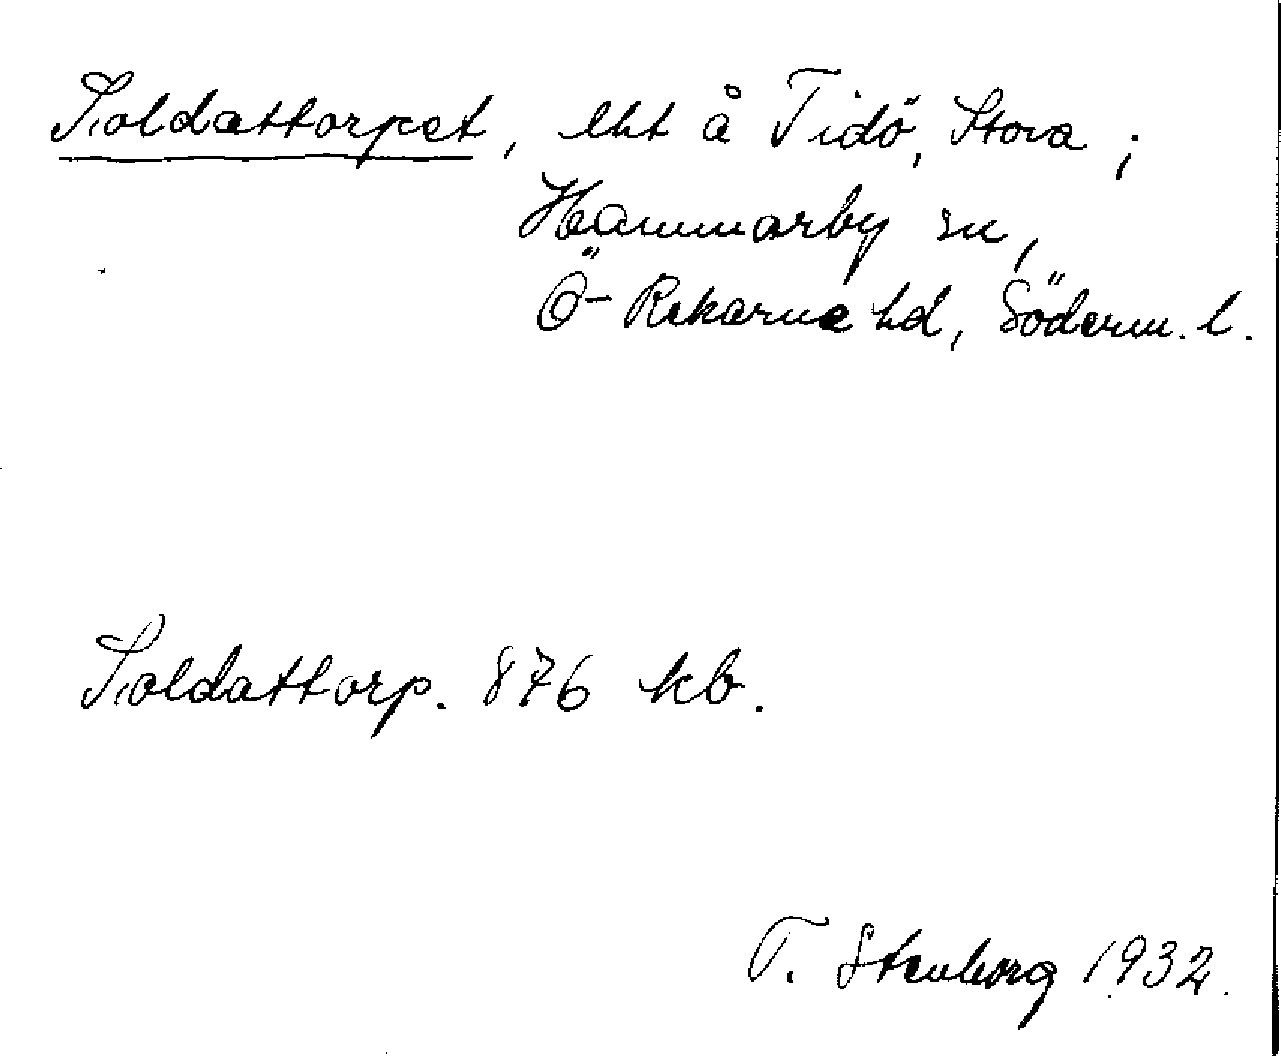 Soldattorpet, lht å Tidö, Stora ;
Hammarby sn,
Ö-Rekarne hd, Söderm. l.
Soldattorp. 876 kb.
T. Stenborg 1932.